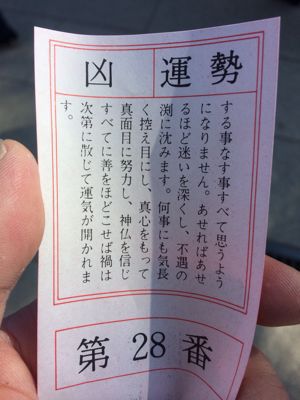 運勢
凶
する事なす事すべて思うよう
になりません。あせればあせ
るほど迷いを深くし、不遇の
渕に沈みます。何事にも気長
く控え目にし、真心をもって
真面目に努力し、神仏を信じ
すべてに善をほどこせば禍は
次第に散じて運気が開かれま
す。
第28番